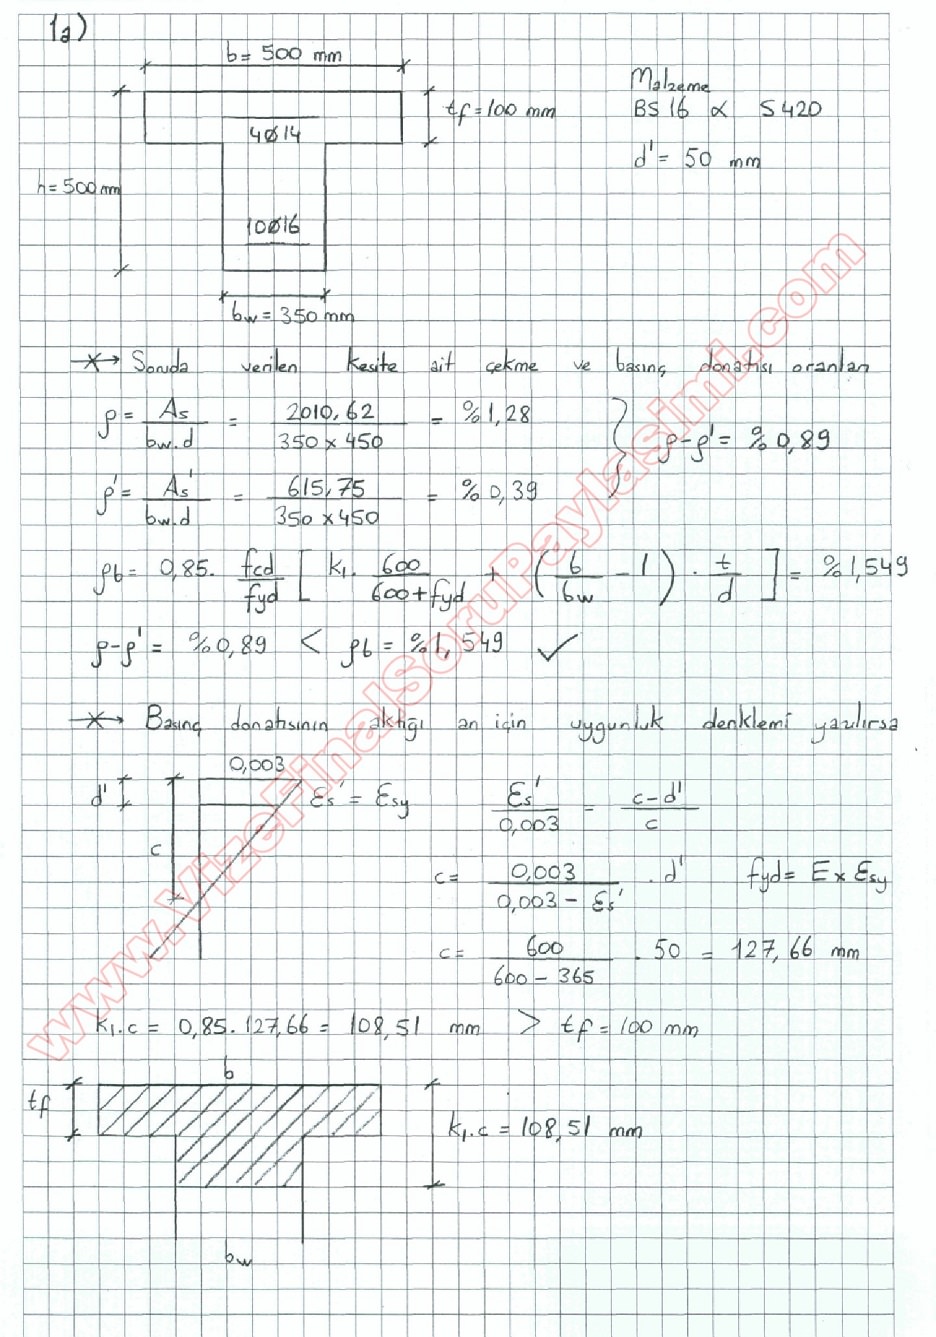 1a)
b = 500 mm
Malzeme
tf = 100 mm
BS 16 α S 420
4Ø14
d' = 50 mm
h = 500 mm
10Ø16
bw = 350 mm
Soruda verilen kesite ait çekme ve basınç donatısı oranları
ρ = As / bw.d = 2010,62 / 350 x 450 = %1,28
ρ - ρ' = %0,89
ρ' = As' / bw.d = 615,75 / 350 x 450 = %0,39
ρb = 0,85. fcd / fyd [ k1. 600 / 600 + fyd + ( b / bw - 1 ) . t / d ] = %1,549
ρ - ρ' = %0,89 < ρb = %1,549 ✓
Basınç donatısının aktığı an için uygunluk denklemi yazılırsa
0,003
d'
εs' = εsy
εs' / 0,003 = c - d' / c
c
c = 0,003 / 0,003 - εs' . d'
fyd = E x εsy
c = 600 / 600 - 365 . 50 = 127,66 mm
k1.c = 0,85. 127,66 = 108,51 mm > tf = 100 mm
b
tf
k1.c = 108,51 mm
bw
www.VizeFinalSoruPaylasimi.com